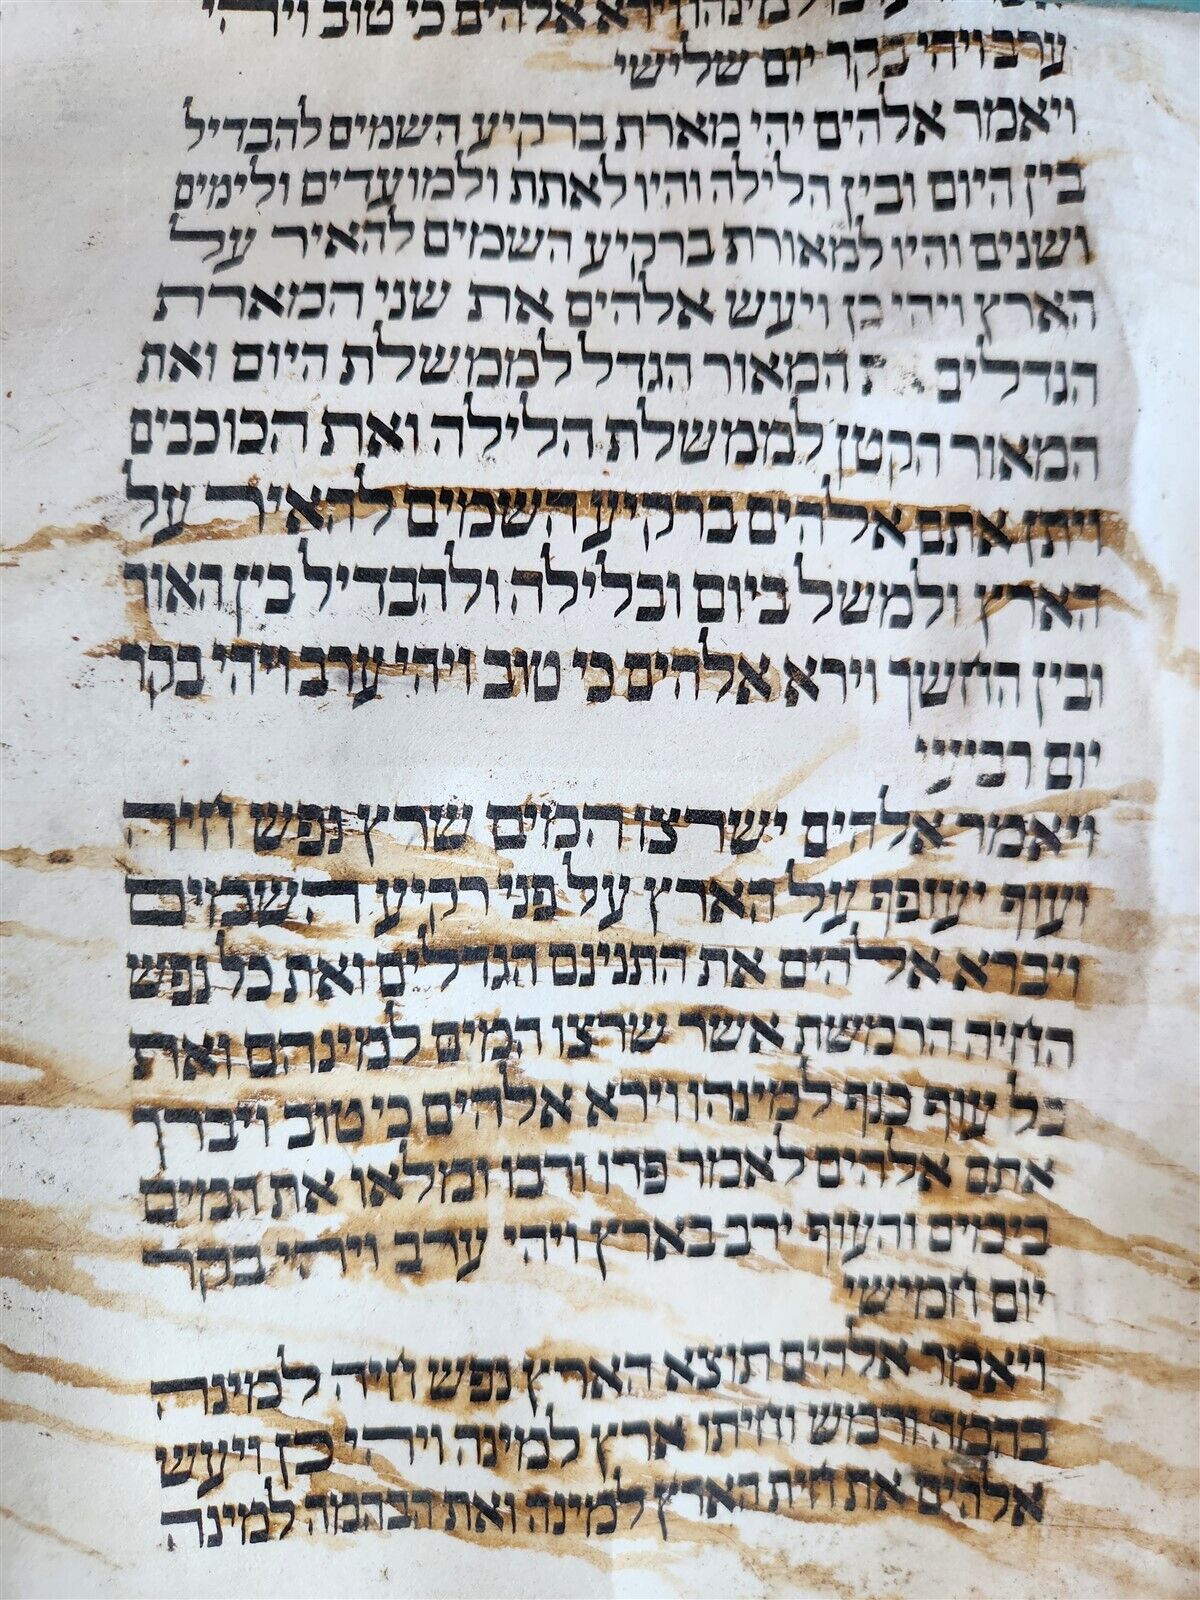 למינהו וירא אלהים כי טוב ויהי
ערב ויהי בקר יום שלישי
ויאמר אלהים יהי מארת ברקיע השמים להבדיל
בין היום ובין הלילה והיו לאתת ולמועדים ולימים
ושנים והיו למאורת ברקיע השמים להאיר על
הארץ ויהי כן ויעש אלהים את שני המארת
הגדלים המאור הגדל לממשלת היום ואת
המאור הקטן לממשלת הלילה ואת הכוכבים
ויתן אתם אלהים ברקיע השמים להאיר על
הארץ ולמשל ביום ובלילה ולהבדיל בין האור
ובין החשך וירא אלהים כי טוב ויהי ערב ויהי בקר
יום רביעי
ויאמר אלהים ישרצו המים שרץ נפש חיה
ועוף יעופף על הארץ על פני רקיע השמים
ויברא אלהים את התנינם הגדלים ואת כל נפש
החיה הרמשת אשר שרצו המים למינהם ואת
כל עוף כנף למינהו וירא אלהים כי טוב ויברך
אתם אלהים לאמר פרו ורבו ומלאו את המים
בימים והעוף ירב בארץ ויהי ערב ויהי בקר
יום חמישי
ויאמר אלהים תוצא הארץ נפש חיה למינה
בהמה ורמש וחיתו ארץ למינה ויהי כן ויעש
אלהים את חית הארץ למינה ואת הבהמה למינה